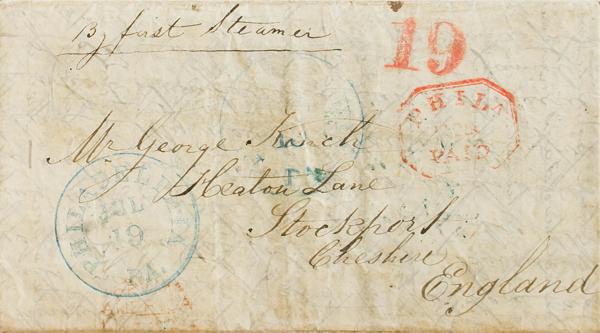 By first Steamer
19
PHILA
PAID
Mr George
Heaton Lane
Stockport
Cheshire
England
PHILADELPHIA
JUL
19
PA.